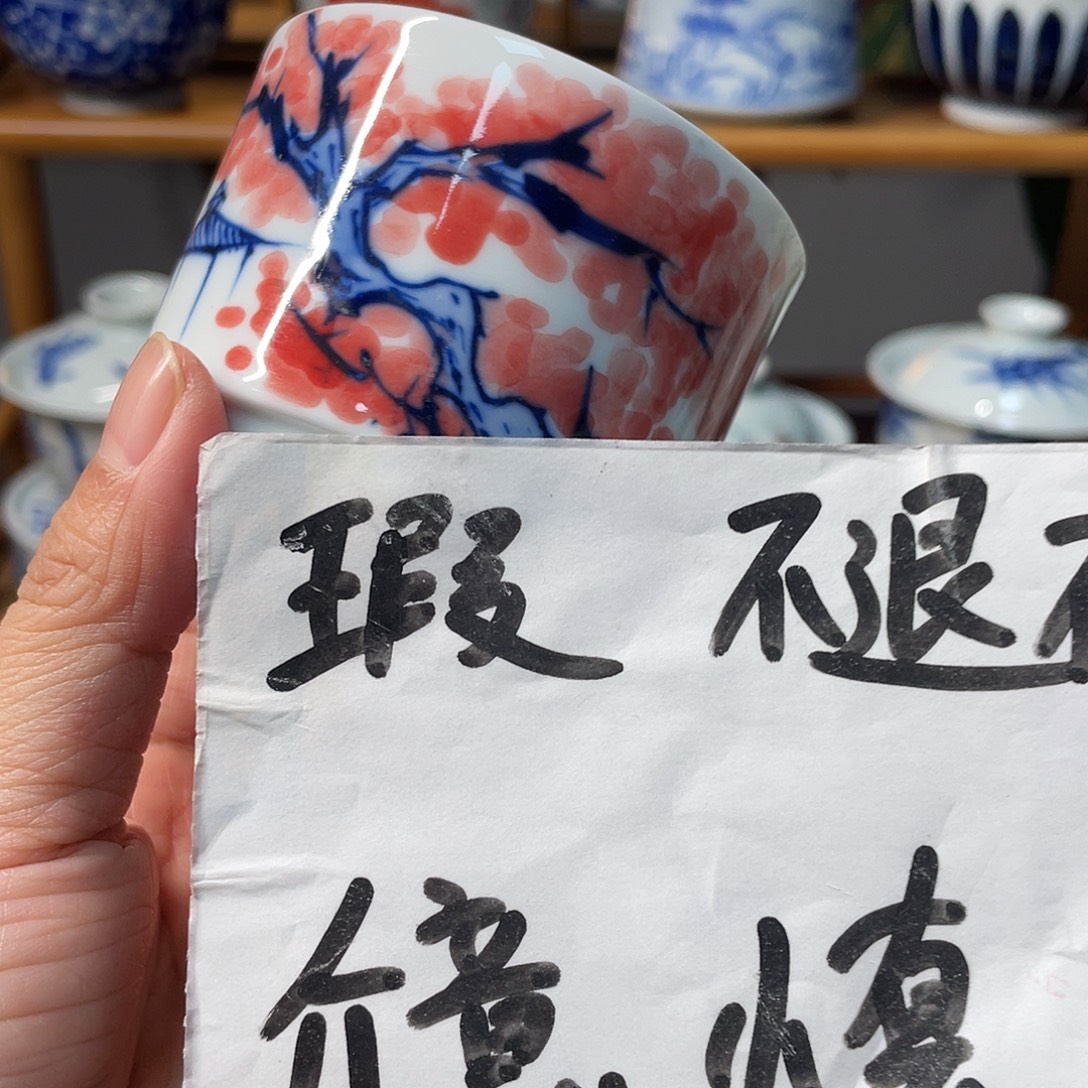 瑕 不退
介意 慎